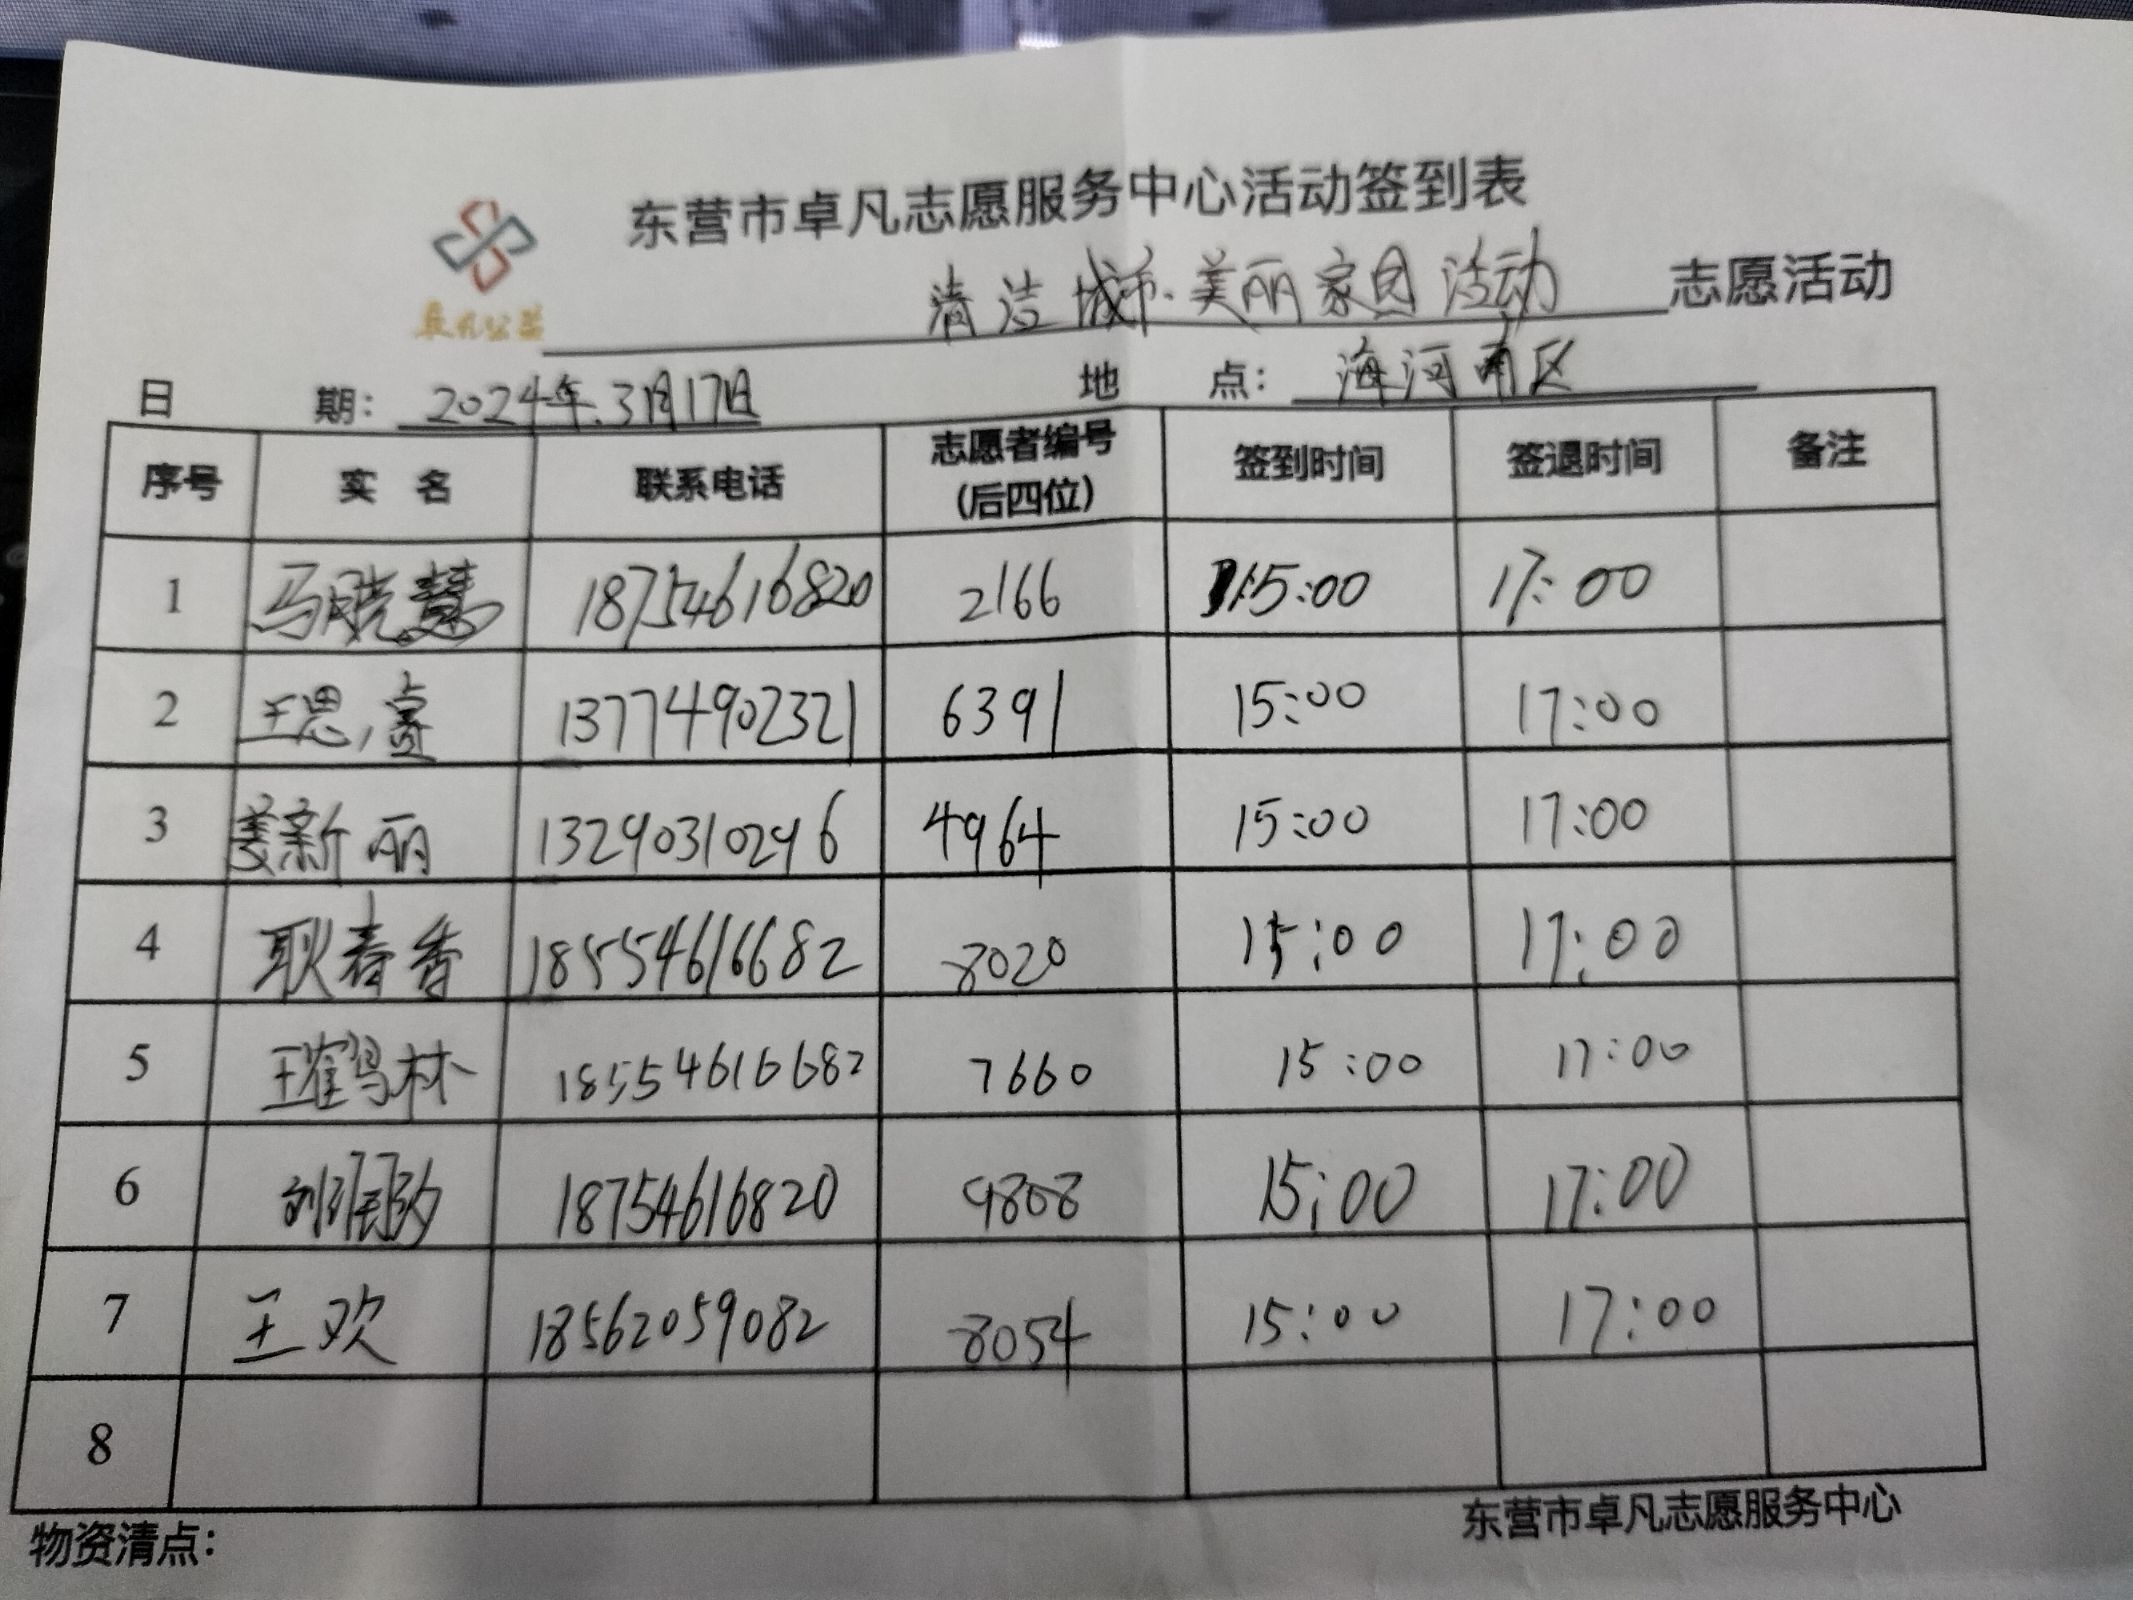 东营市卓凡志愿服务中心活动签到表
卓凡公益
清洁城市·美丽家园活动 志愿活动
日 期: 2024年.3月17日 地 点: 海河南区
序号 实 名 联系电话 志愿者编号(后四位) 签到时间 签退时间 备注
1 马晓慧 18754616820 2166 15:00 17:00
2 王思睿 13774902321 6391 15:00 17:00
3 姜新丽 13290310296 4964 15:00 17:00
4 耿春香 18554616682 8020 15:00 17:00
5 王鹤林 18554616682 7660 15:00 17:00
6 18754616820 9808 15:00 17:00
7 王欢 18562059082 8054 15:00 17:00
8
物资清点:
东营市卓凡志愿服务中心